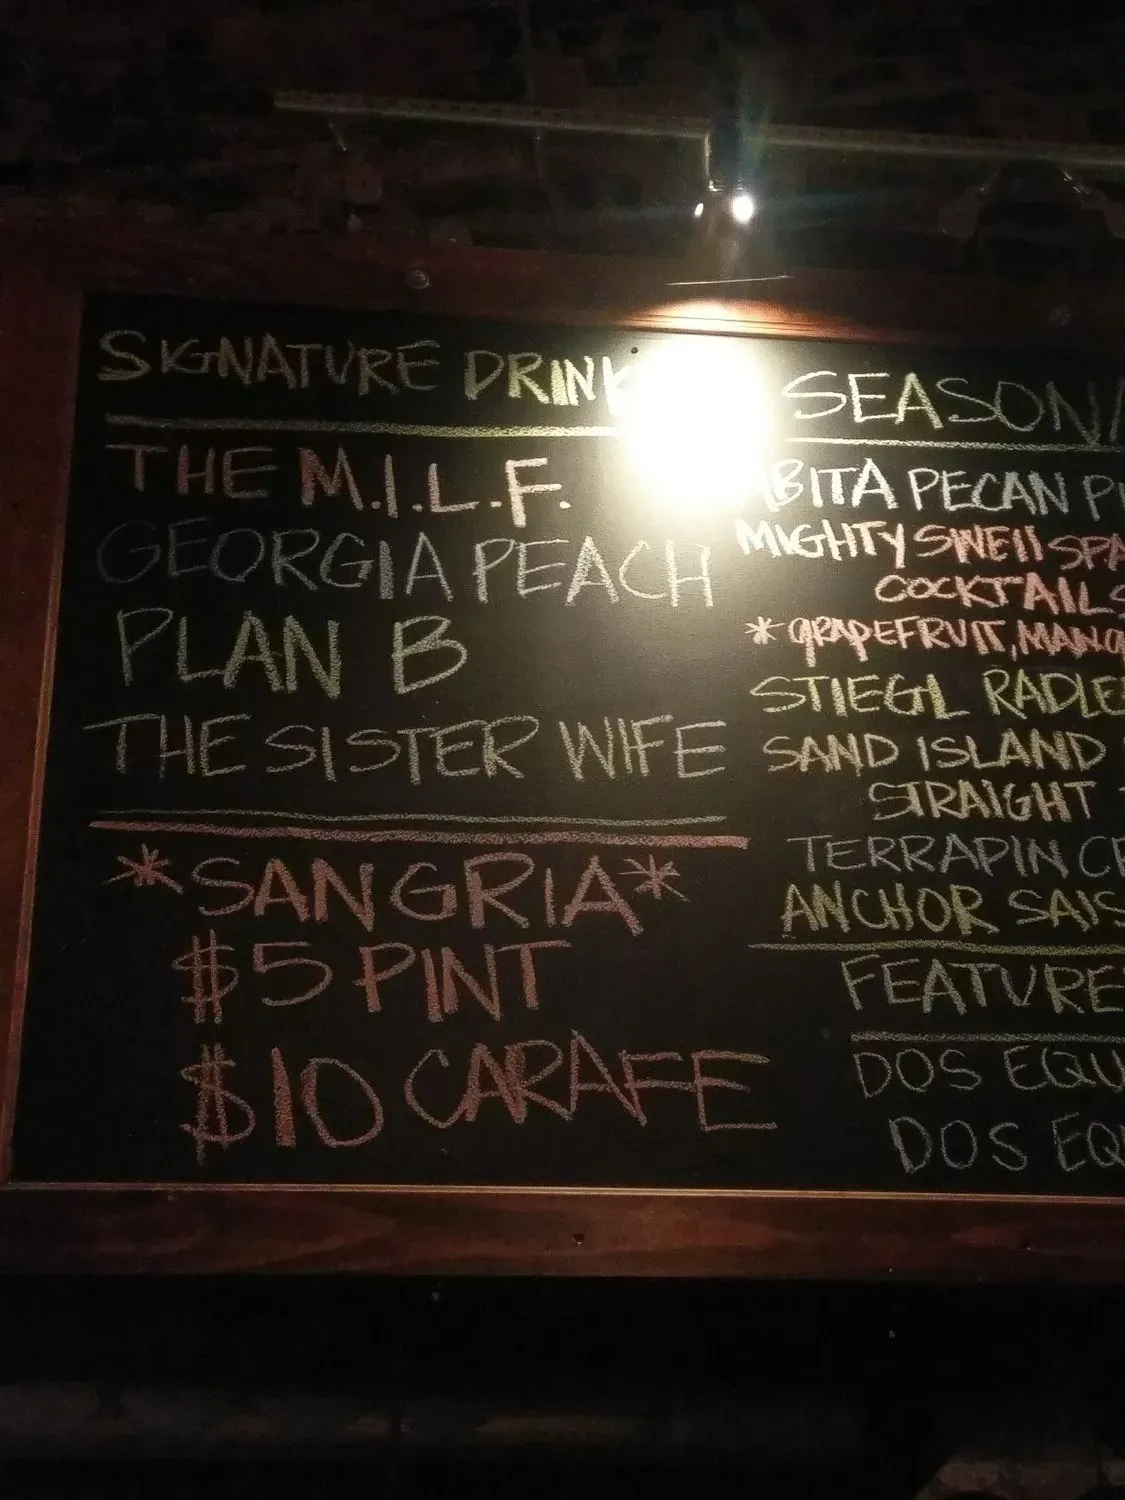 SIGNATURE DRINK
THE M.I.L.F.
GEORGIA PEACH
PLAN B
THE SISTER WIFE
*SANGRIA*
$5 PINT
$10 CARAFE
SEASON
ABITA PECAN P
MIGHTY SWELL SPA
COCKTAILS
*GRAPEFRUIT, MANG
STIEGL RADLE
SAND ISLAND
STRAIGHT
TERRAPIN CR
ANCHOR SAIS
FEATURE
DOS EQU
DOS EQ